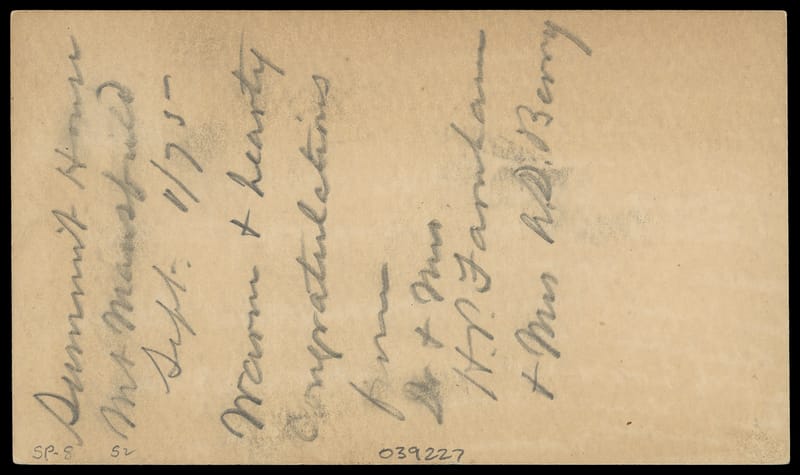 Summit House
Mt Mansfield
Sept. 1/75
Warm & hearty
Congratulations
from
Dr & Mrs
H.P. Farnham
& Mrs R.D. Berry
SP-8 S2 039227